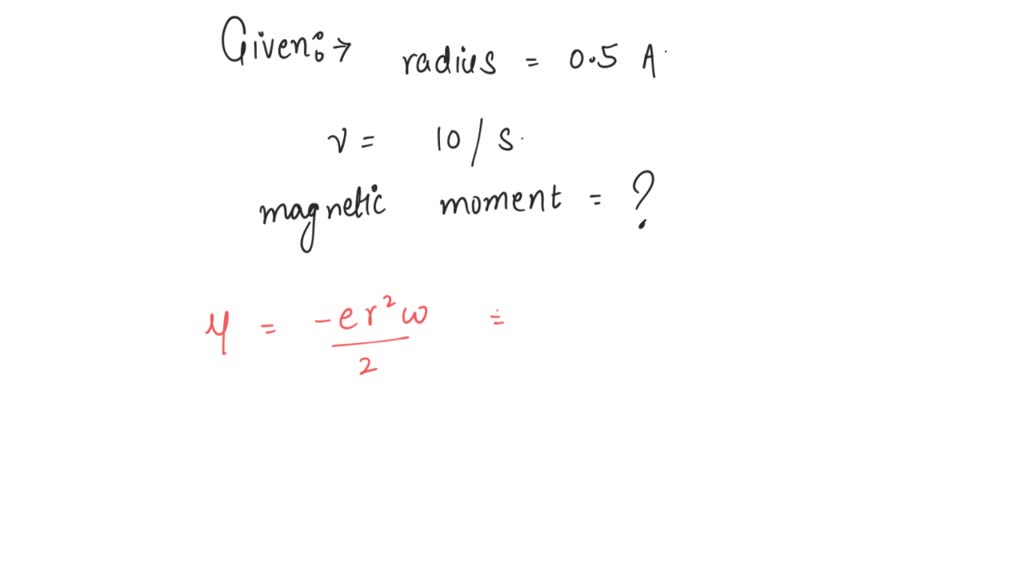 Given:→ radius = 0.5 A
ν = 10/s.
magnetic moment = ?
μ = -er²ω/2 =